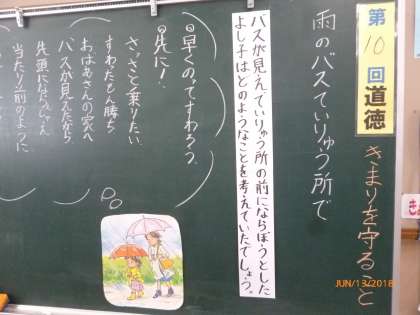 第10回道徳
きまりを守ること
雨のバスていりゅう所で
バスが見えていりゅう所の前にならぼうとした
よし子はどのようなことを考えていたでしょう。
早くのってすわろう。
先に！
さっさと乗りたい
すわったもん勝ち
おばあさんの家へ
バスが見えたから
先頭にならんじゃえ
当たり前のように
JUN/13/2018